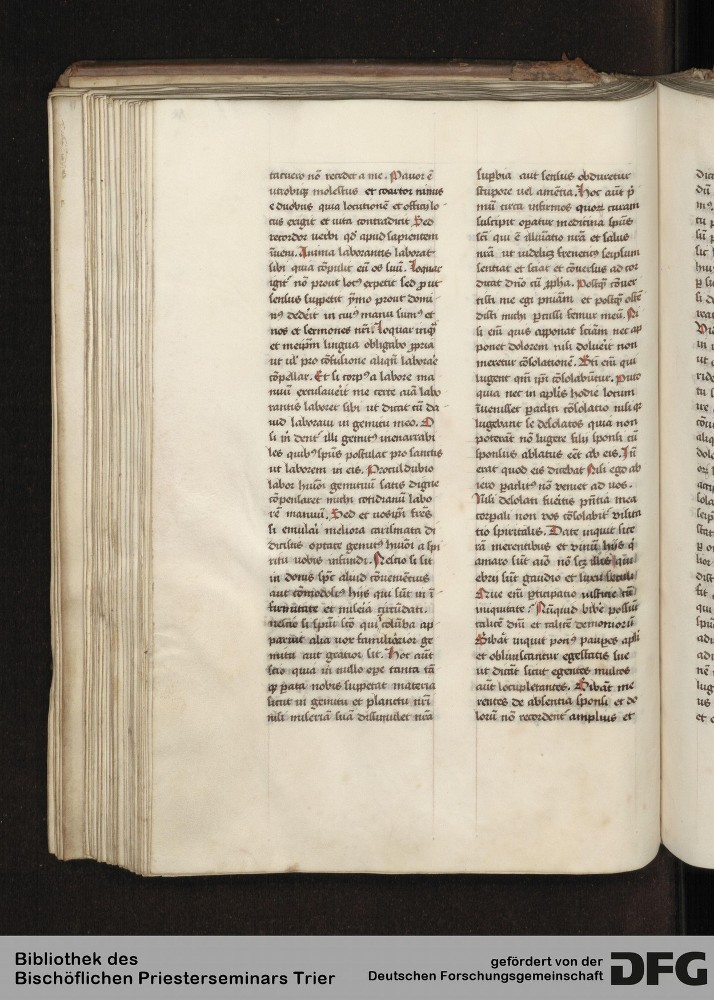 tacuero nō recedet a me. Pauor ē
utrobiq; molestus et coartor nimis
e duobus quia locutionē et officiū lo
cus exigit et uita contradicit Sed
recordor uerbi qd̄ apud sapientem
īueni. Anima laborantis laborat
sibi quia cōpulit eū os suū. Loquar
igit᷑ nō prout locꝰ expetit sed ꝓ ut
sensus suppetit ymo prout domi
nꝰ dederit in cuiꝰ manu sumꝰ et
nos et sermones nr̄i. Loquar inq̄
et meip̄m lingua obligabo ꝓpria
ut ul᷑ pro cōfusione aliqn̄ laborare
cōpellar. Et si corpꝰ a labore ma
nuū excusauerit me certe aīa labo
rantis laboret sibi ut dicat cū da
uid laboraui in gemitu meo. O
si m̄ dent᷑ illi gemitꝰ inenarrabi
les quibꝰ spūs postulat pro sanctis
ut laborem in eis. Procul dubio
labor huiōi gemituū satis digne
cōpensaret michi cotidianū labo
rē manuū. Sed et uosip̄i fr̄es
si emulaī meliora carismata di
dicistis optate gemitꝰ huiōi a spi
ritu uobis infundi. Nescio si sit
in donis spc̄ aliud cōueniētius
aut cōmodosiꝰ hijs qui sūt in ī
firmitate et miseīa cūdati.
nescio si spūs sc̄o qui ī colūba ap
paruit alia uox familiarior ge
mitu aut gratior sit. Hoc aūt
scio quia in nullo ope tanta tā
q̄ ꝑata nobis suppetat materia
sicut in gemitu et planctu nr̄i
nisi miseriā suā dissimulet nr̄a
supbia aut sensus obduretur
stupore uel amētia. Hoc aūt p̄
mū circa infirmos quoꝝ curam
suscipit opatur medicina spūs
sc̄i qui ē illuīatio nr̄a et salus
nr̄a ut uidelicꝫ freneticꝰ seipsum
sentiat et sciat et cōuersus ad cor
dicat dn̄o cū ꝓpha. Postq̄ cōuer
tisti me egi pn̄iam et postq̄ oste
disti michi ꝑcussi femur meū. Ni
si em̄ quis apponat sciām nec ap
ponet dolorem nisi doluerit non
meretur cōsolationē. Bt̄i em̄ qui
lugent qm̄ ip̄i cōsolabūtur. Puto
quia nec in aplis hodie locum
īuenisset paracliti cōsolatio nisi q̄
lugebant se desolatos quia non
poterāt nō lugere filij sponsi cū
sponsus ablatus eēt ab eis. Īn
erat quod eis dicebat Nisi ego ab
iero paclitꝰ nō veniet ad uos.
Nisi desolati fueritis p̄ntia mea
corpali non vos cōsolabit᷑ visita
tio spiritalis. Date inquit sice
rā merentibus et vinū hijs q̄
amaro sūt aīo nō scꝫ illis qui
ebrij sūt gaudio et luxu seculi
Que em̄ pticipatio iusticie cū
iniquitate? Nūquid bibe possūt
calicē dn̄i et calicē demoniorū
Bibāt inquit potiꝰ paupes xp̄i
et obliuiscantur egestatis sue
ut dicāt sicut egentes multos
aūt locupletantes. Bibāt me
rentes de absentia sponsi et do
lorū nō recordent᷑ amplius et
Bibliothek des
Bischöflichen Priesterseminars Trier
gefördert von der
Deutschen Forschungsgemeinschaft
DFG